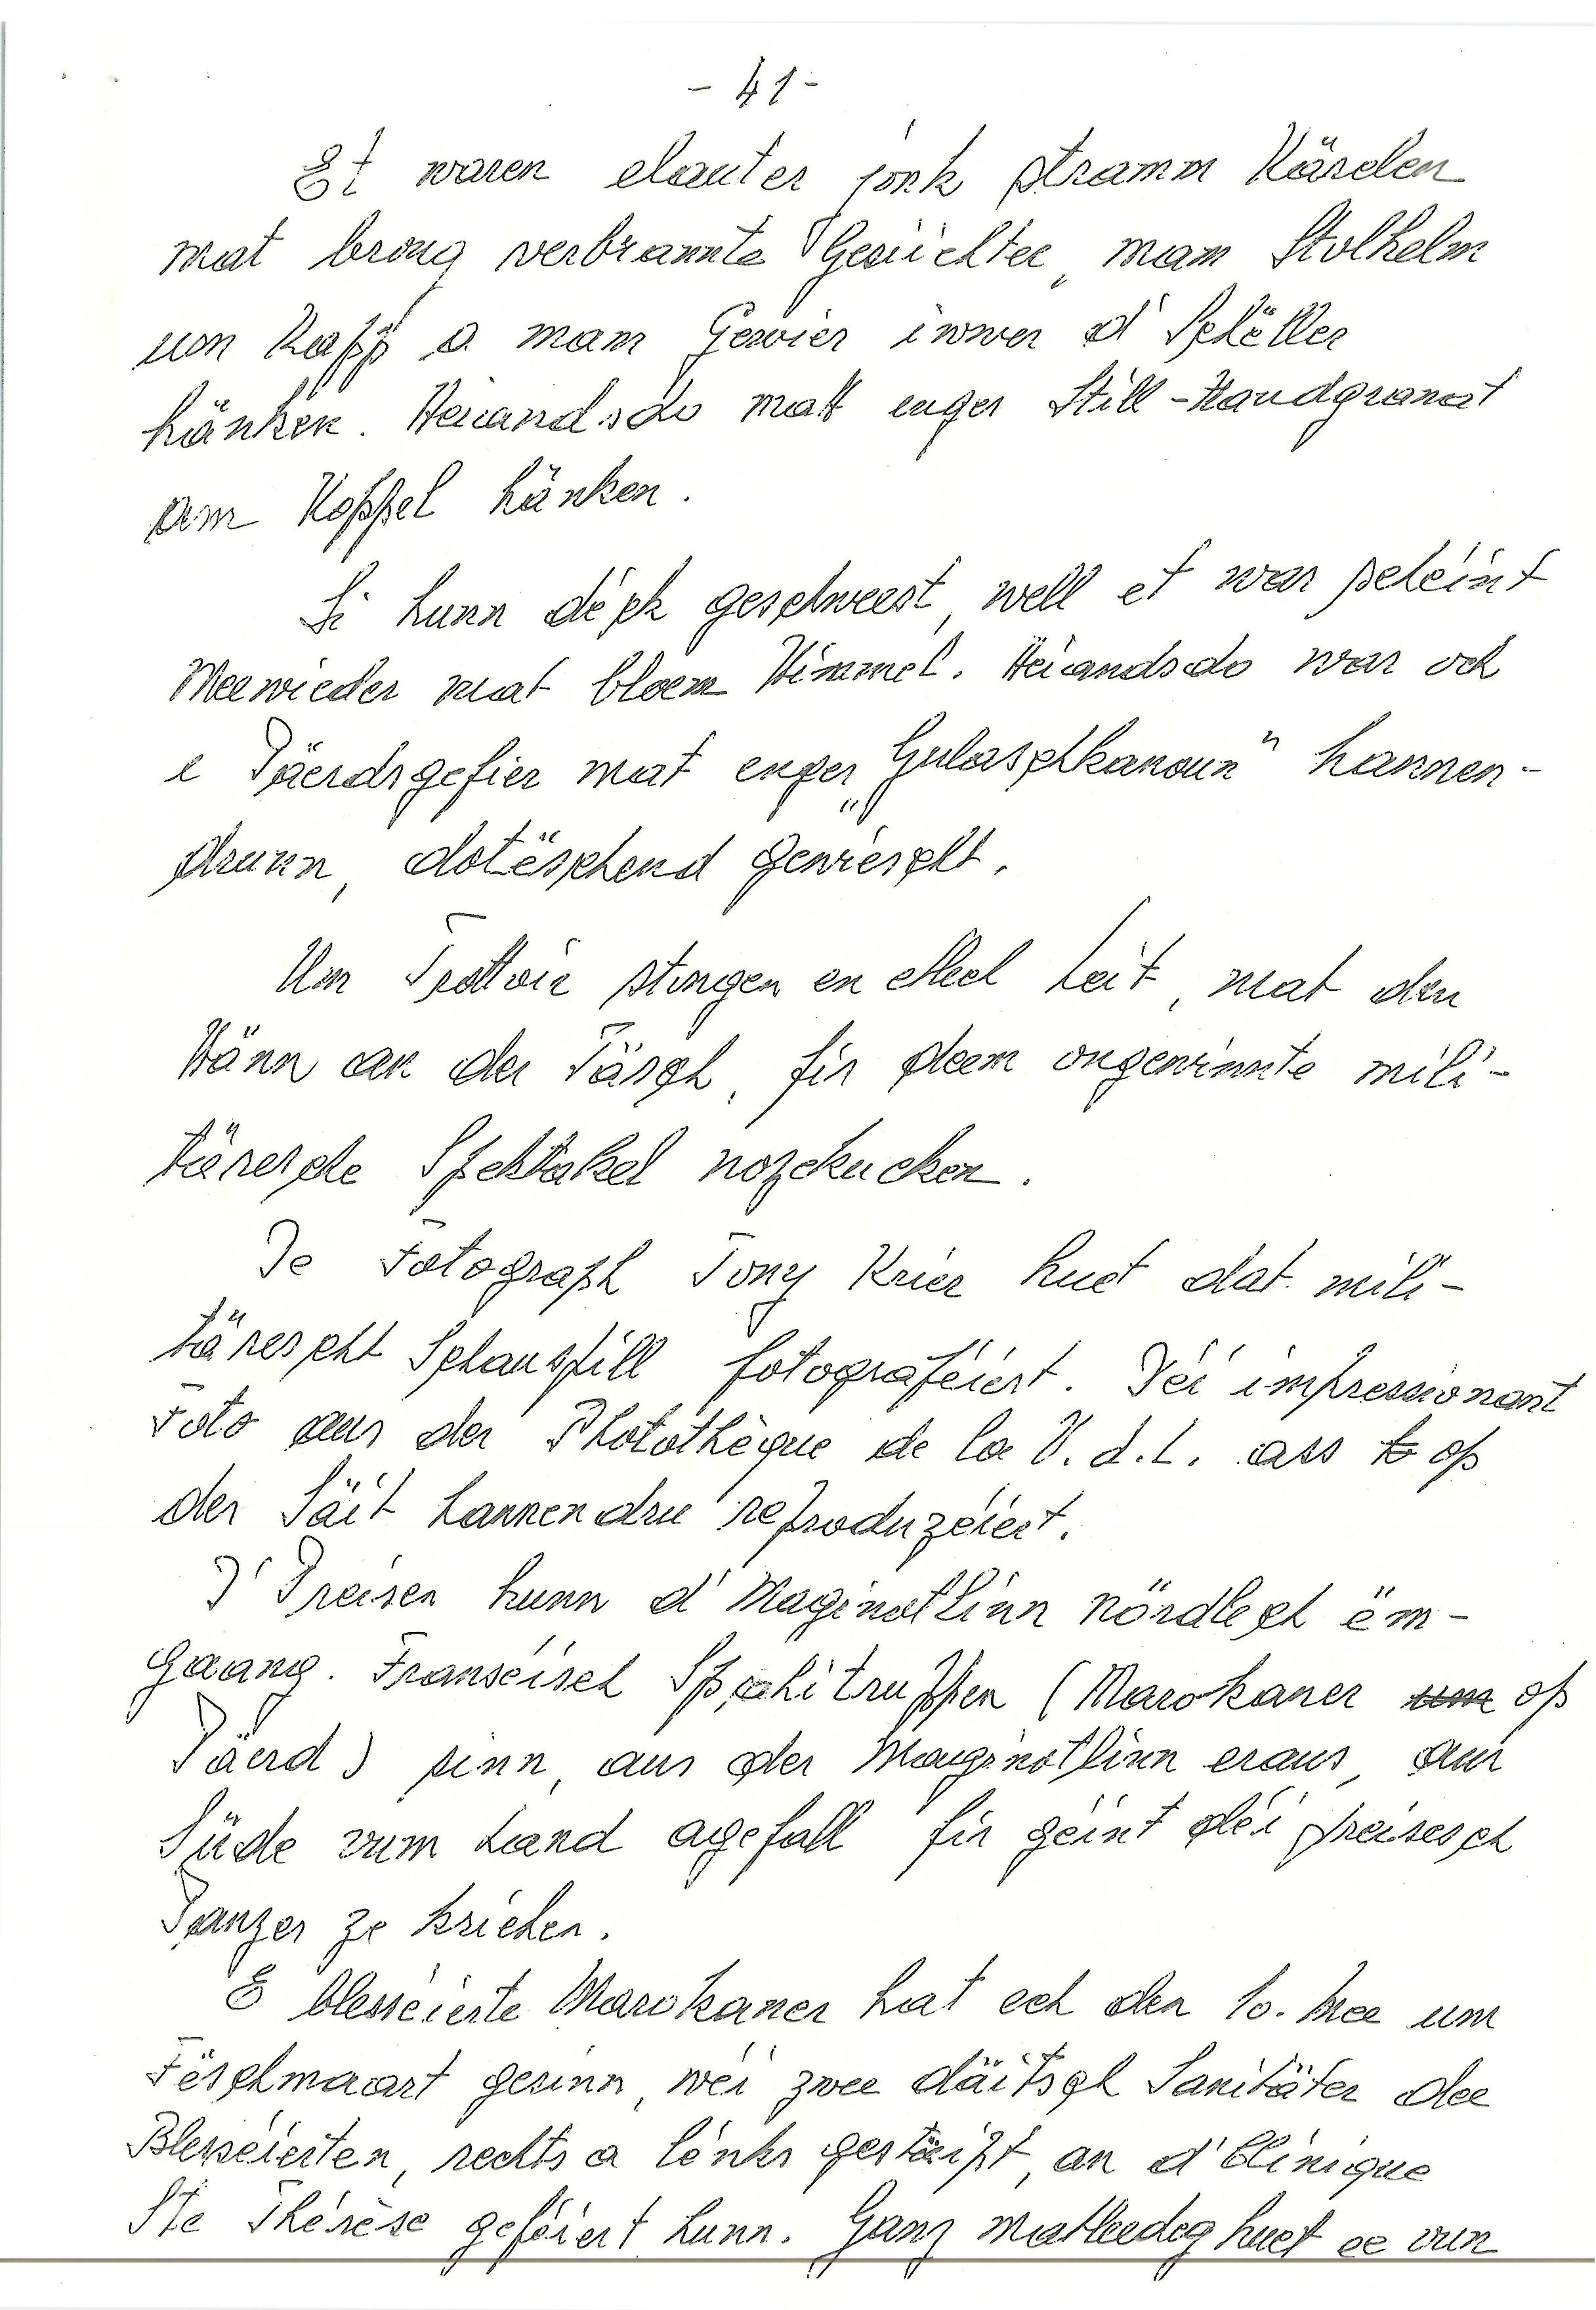 - 41 -
Et waren elauter jonk stramm Kärelen
mat broug verbrannte Gesiichter, mam Stolhelm
um Kapp a mam Gewier iwwer d'Schëller
hänken. Heiandsdo matt enger Still-Handgranat
am Koppel hänken.
Si hunn déck geschweest, well et war schéint
Meewieder mat bloem Himmel. Heiandsdo war och
e Päerdsgefier mat enger „Gulaschkanoun" hannen-
drunn, dotëschend gemëscht.
Um Trottoir stongen en etlech Leit, mat den
Hänn an der Täsch, fir deem ongewinnte mili-
täresche Spektakel nozekucken.
De Fotograph Tony Krier huet dat mili-
tärescht Schauspill fotograféiert. Déi impressionant
Foto aus der Photothèque de la V.d.L. ass op
der Säit hannendru reproduzéiert.
D'Preisen hunn d'Maginotlinn nördlech ëm-
gaang. Franséisch Spahitruppen (Marokaner um op
Päerd) sinn, aus der Maginotlinn eraus, am
Süde vum Land agefall fir géint déi preisesch
Panzer ze kriehen.
E blesséierte Marokaner hat ech den 10. Mee um
Fëschmaart gesinn, wéi zwee däitsch Sanitäter dee
Blesséierten, rechts a lénks gestäipt, an d'Clinique
Ste Thérèse geféiert hunn. Ganz matleedeg huet ee vun